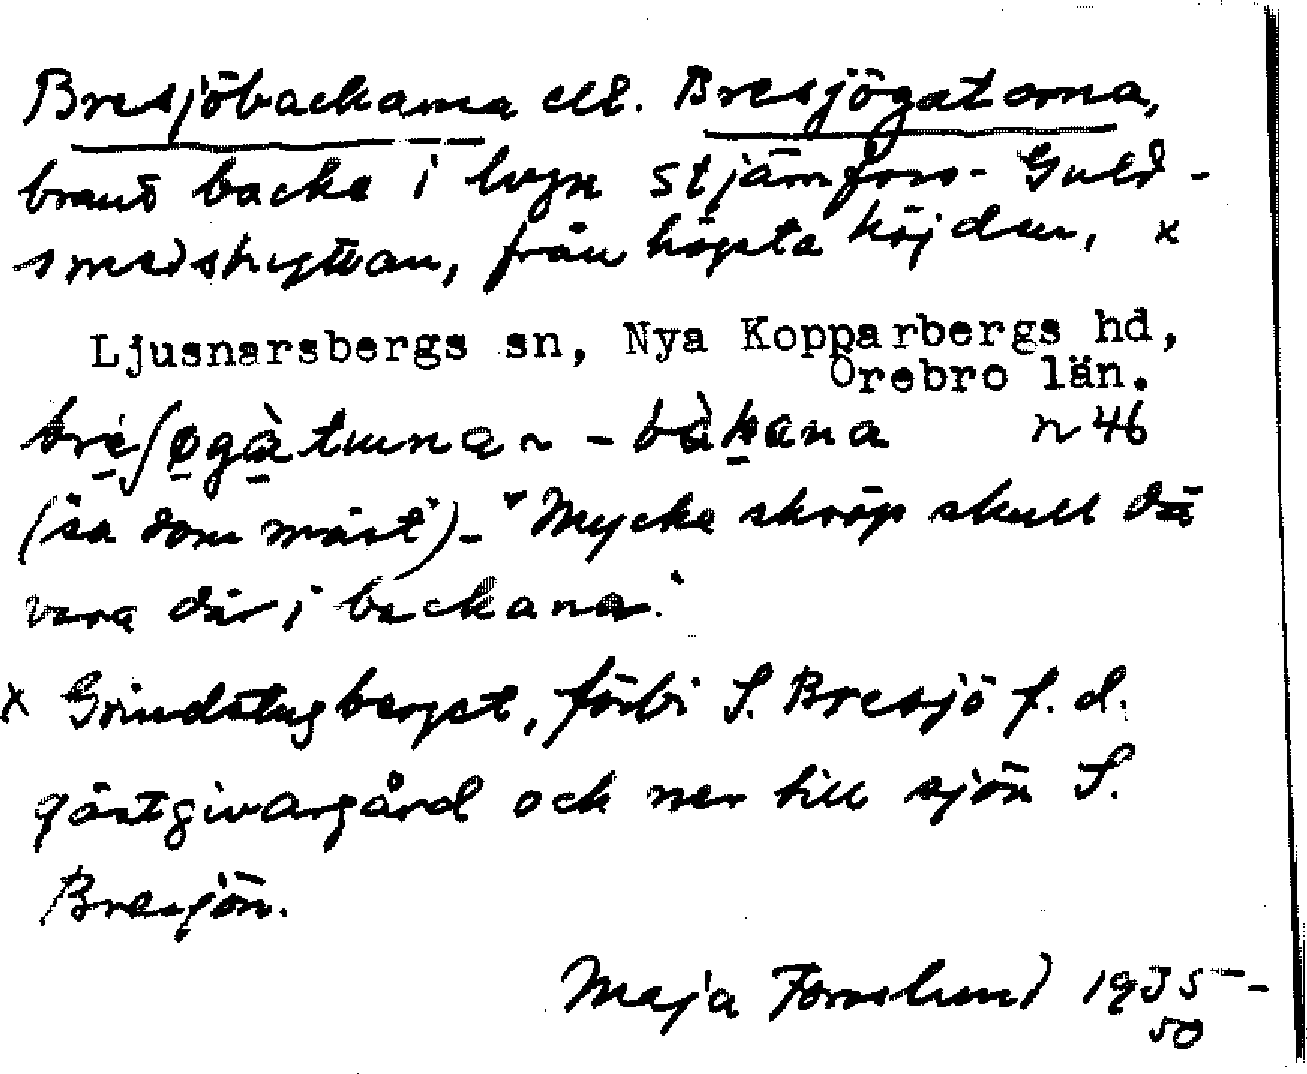 Bresjöbackarna ell. Bresjögatorna,
brant backe i lvgn Stjärnfors- Guld-
smedshyttan, från högsta höjden, x
Ljusnarsbergs sn, Nya Kopparbergs hd,
Örebro län.
-bàkana n 46
(sa dom mäst) - "Mycke skröp skull dä
vara där i backana."
x Grindstugberget, förbi S. Bresjö f.d.
gästgivargård och ner till sjön S.
Bresjön.
Maja Forsslund 1935-
50